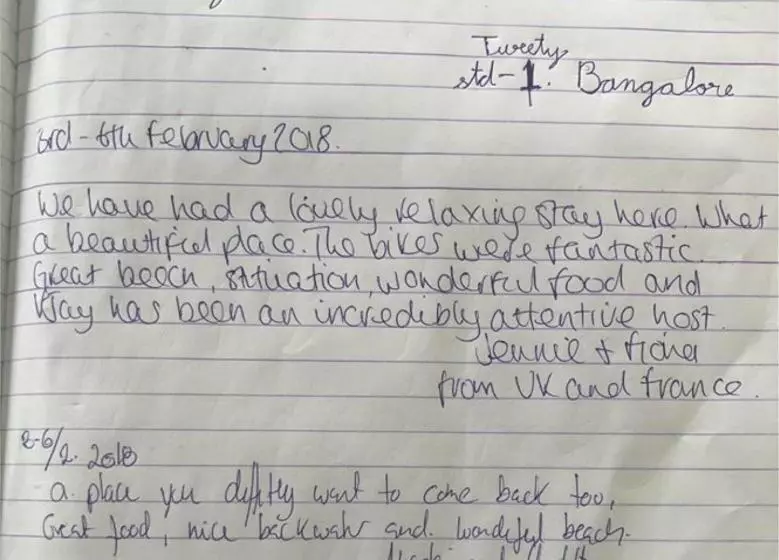 Tweety
std-1. Bangalore
3rd-6th February 2018.
We have had a lovely relaxing stay here. What
a beautiful place. The bikes were fantastic.
Great beach, situation, wonderful food and
has been an incredibly attentive host.
Jennie + Fiona
from UK and france.
2-6/2. 2018
a place you want to come back too,
Great food, nice and. beach.